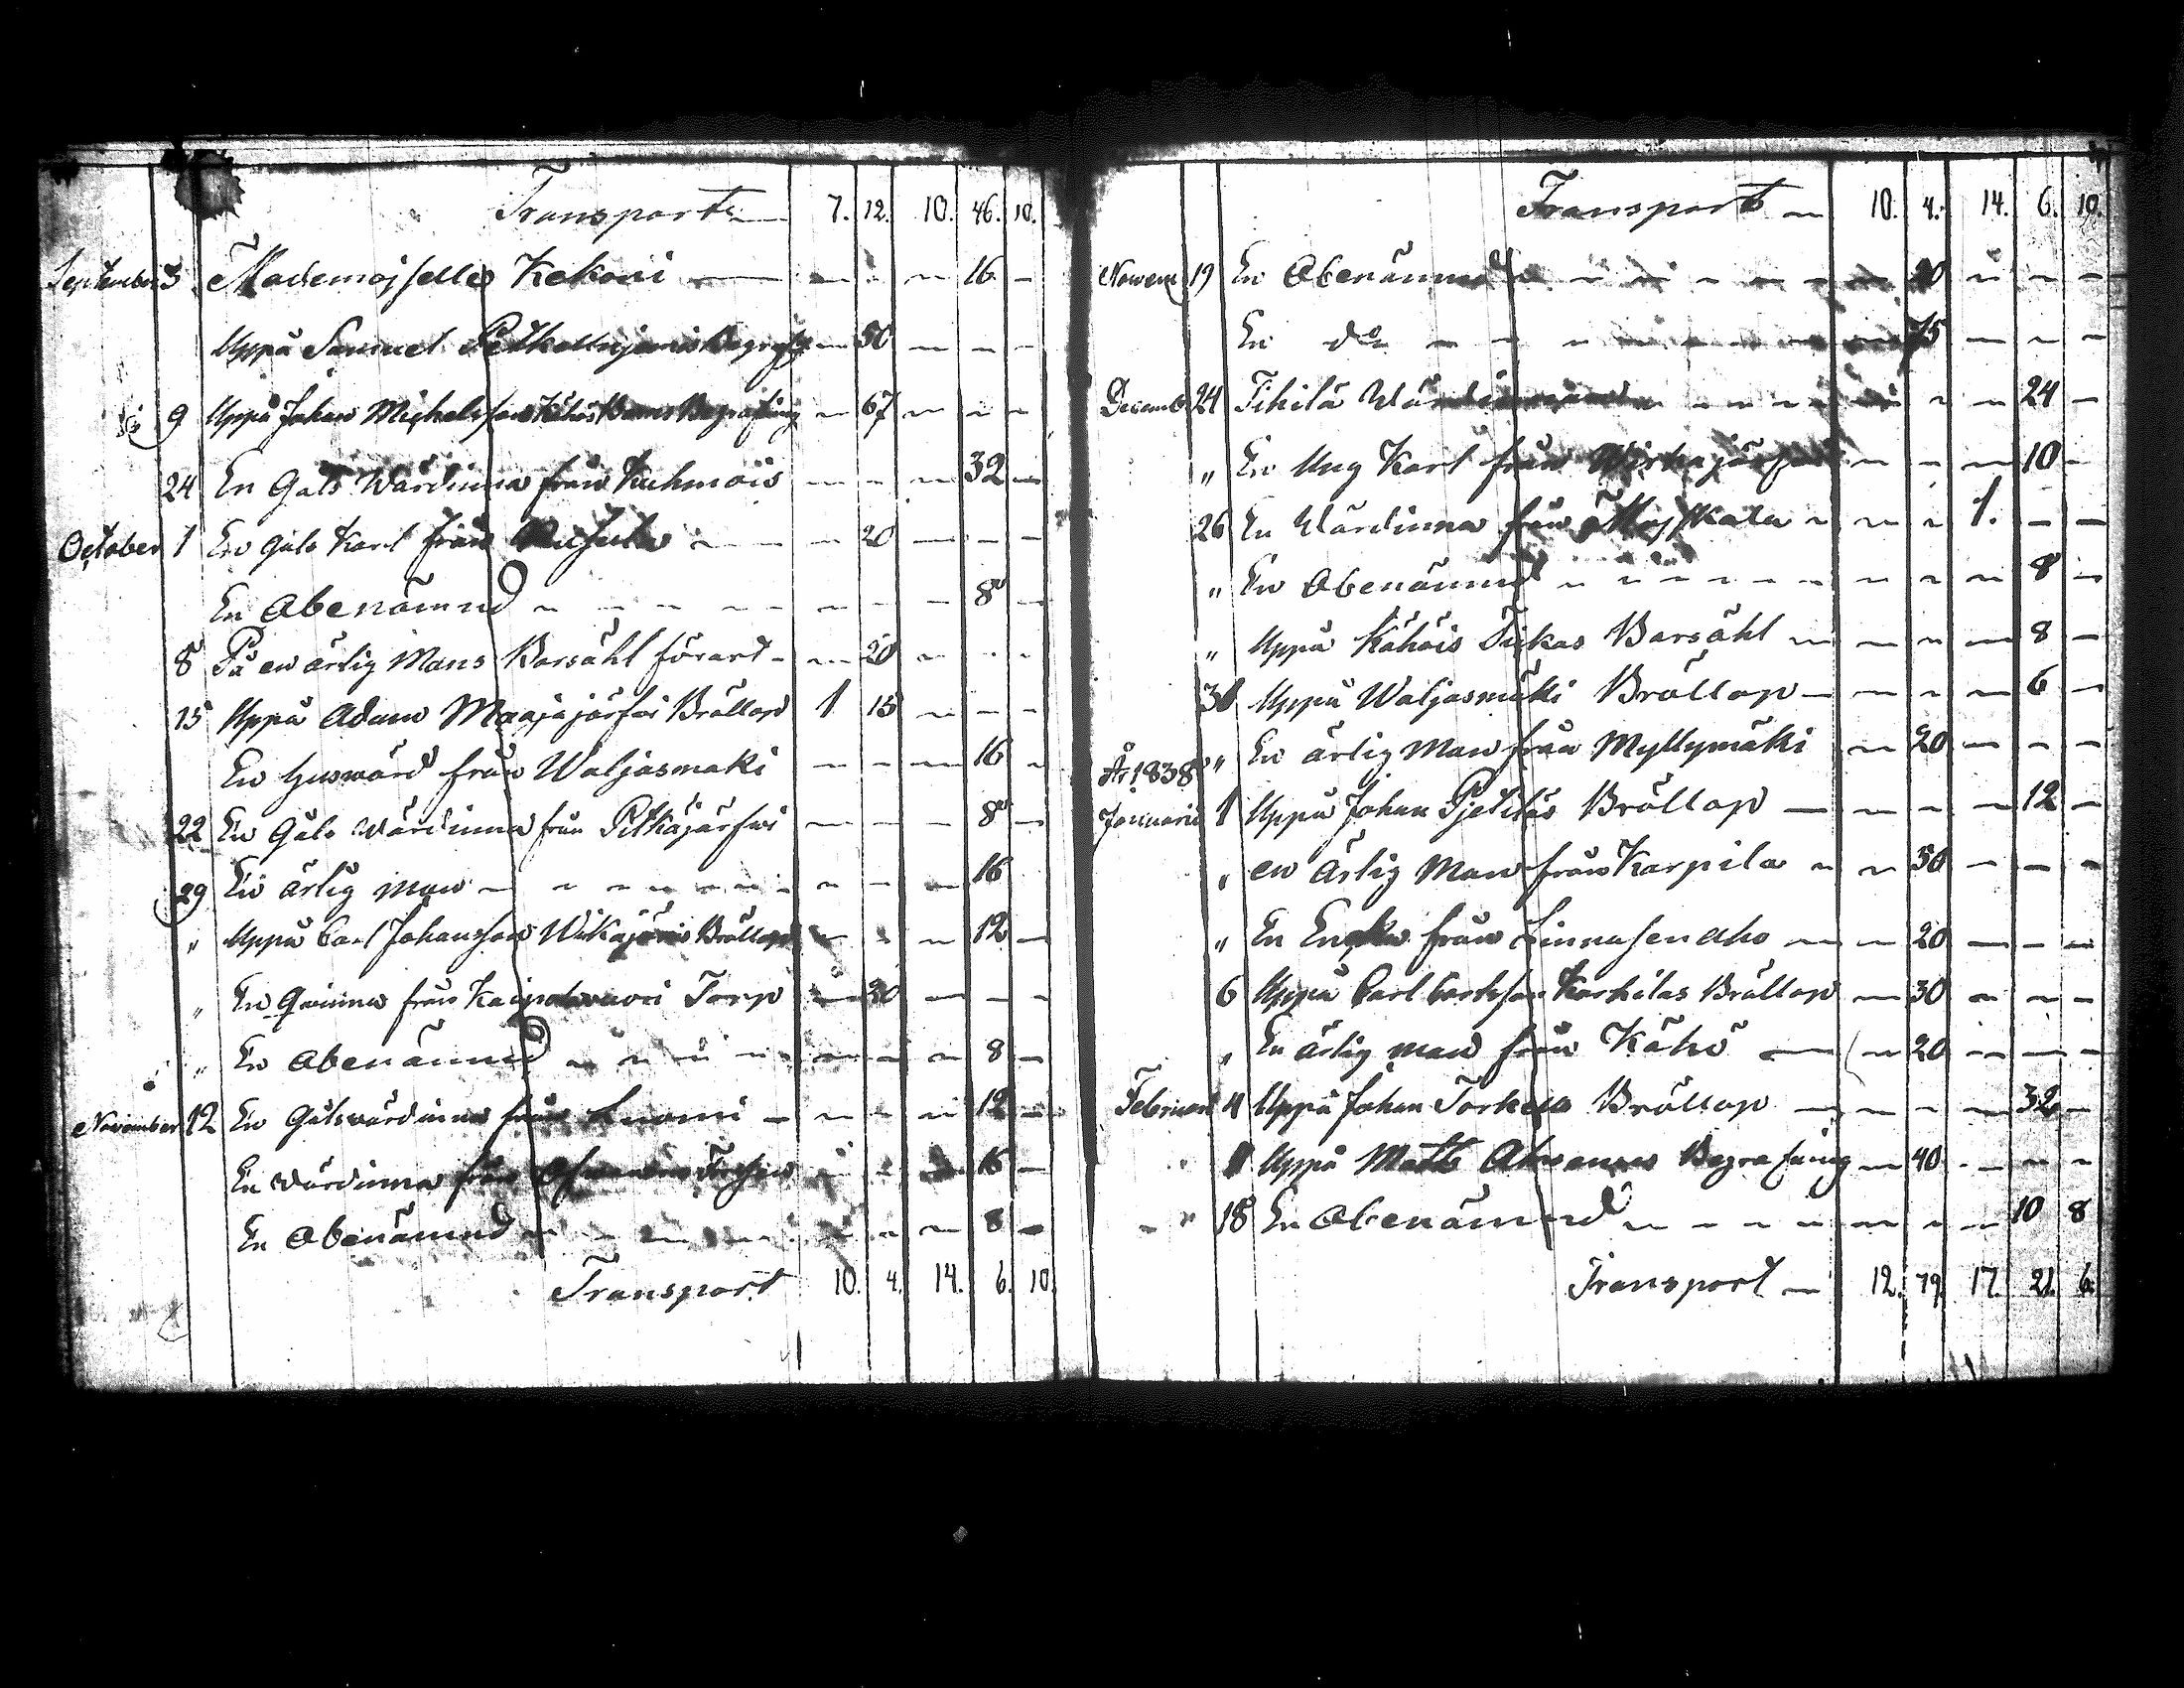 Transport 7. 12. 10. 46. 10.
September 3 Mademojselle Kekoni — — — 16 —
Uppå Samuel Begrafg — 50 — — —
9 Uppå Johan Michelsson Barns Begrafning — 67 — — —
24 En Gåls Wärdinna från Kuhmois — — — 32 —
October 1 En Gåls Karl från — 20 — — —
En Obenämnd — — — 8 —
8 På en ärlig Mans Barsåhl förard — 20 — — —
15 Uppå Adam Maajajärfwi Bröllop 1 15 — — —
En Huswärd från Waljasmaki — — — 16 —
22 En Gåls Wärdinna från Pitkäjärfwi — — — 8 —
29 En ärlig Man — — — 16 —
" Uppå Carl Johansson Bröllop — — — 12 —
" En Qwinna från Torp — 30 — — —
" En Obenämnd — — — 8 —
November 12 En Gålswärdinna från — — — 12 —
En Wärdinna från — — — 16 —
En Obenämnd — — — 8 —
Transport 10. 4. 14. 6. 10.
Transport — 10. 4. 14. 6. 10.
Novem 19 En Obenämnd — 20 — — —
En do — 15 — — —
Decemb 24 Tihilä — — — 24 —
" En Ung Karl från — — — 10 —
26 En Wärdinna från — — 1. — —
" En Obenämnd — — — 8 —
" Uppå Kähöis Barsåhl — — — 8 —
31 Uppå Waljasmäki Bröllop — — — 6 —
" En ärlig Man från Myllymäki — 20 — — —
År 1838
Januarii 1 Uppå Johan Bröllop — — — 12 —
" en Ärlig Man från Karpila — 50 — — —
" En Enka från Linnasenaho — 20 — — —
6 Uppå Carl Carlsson Karhilas Bröllop — 30 — — —
" En ärlig man från Kähö — 20 — — —
Februari 4 Uppå Johan Bröllop — — — 32 —
" Uppå Matts Begrafning — 40 — — —
" 18 En Obenämnd — — — 10 8
Transport — 12. 79. 17. 21. 6.